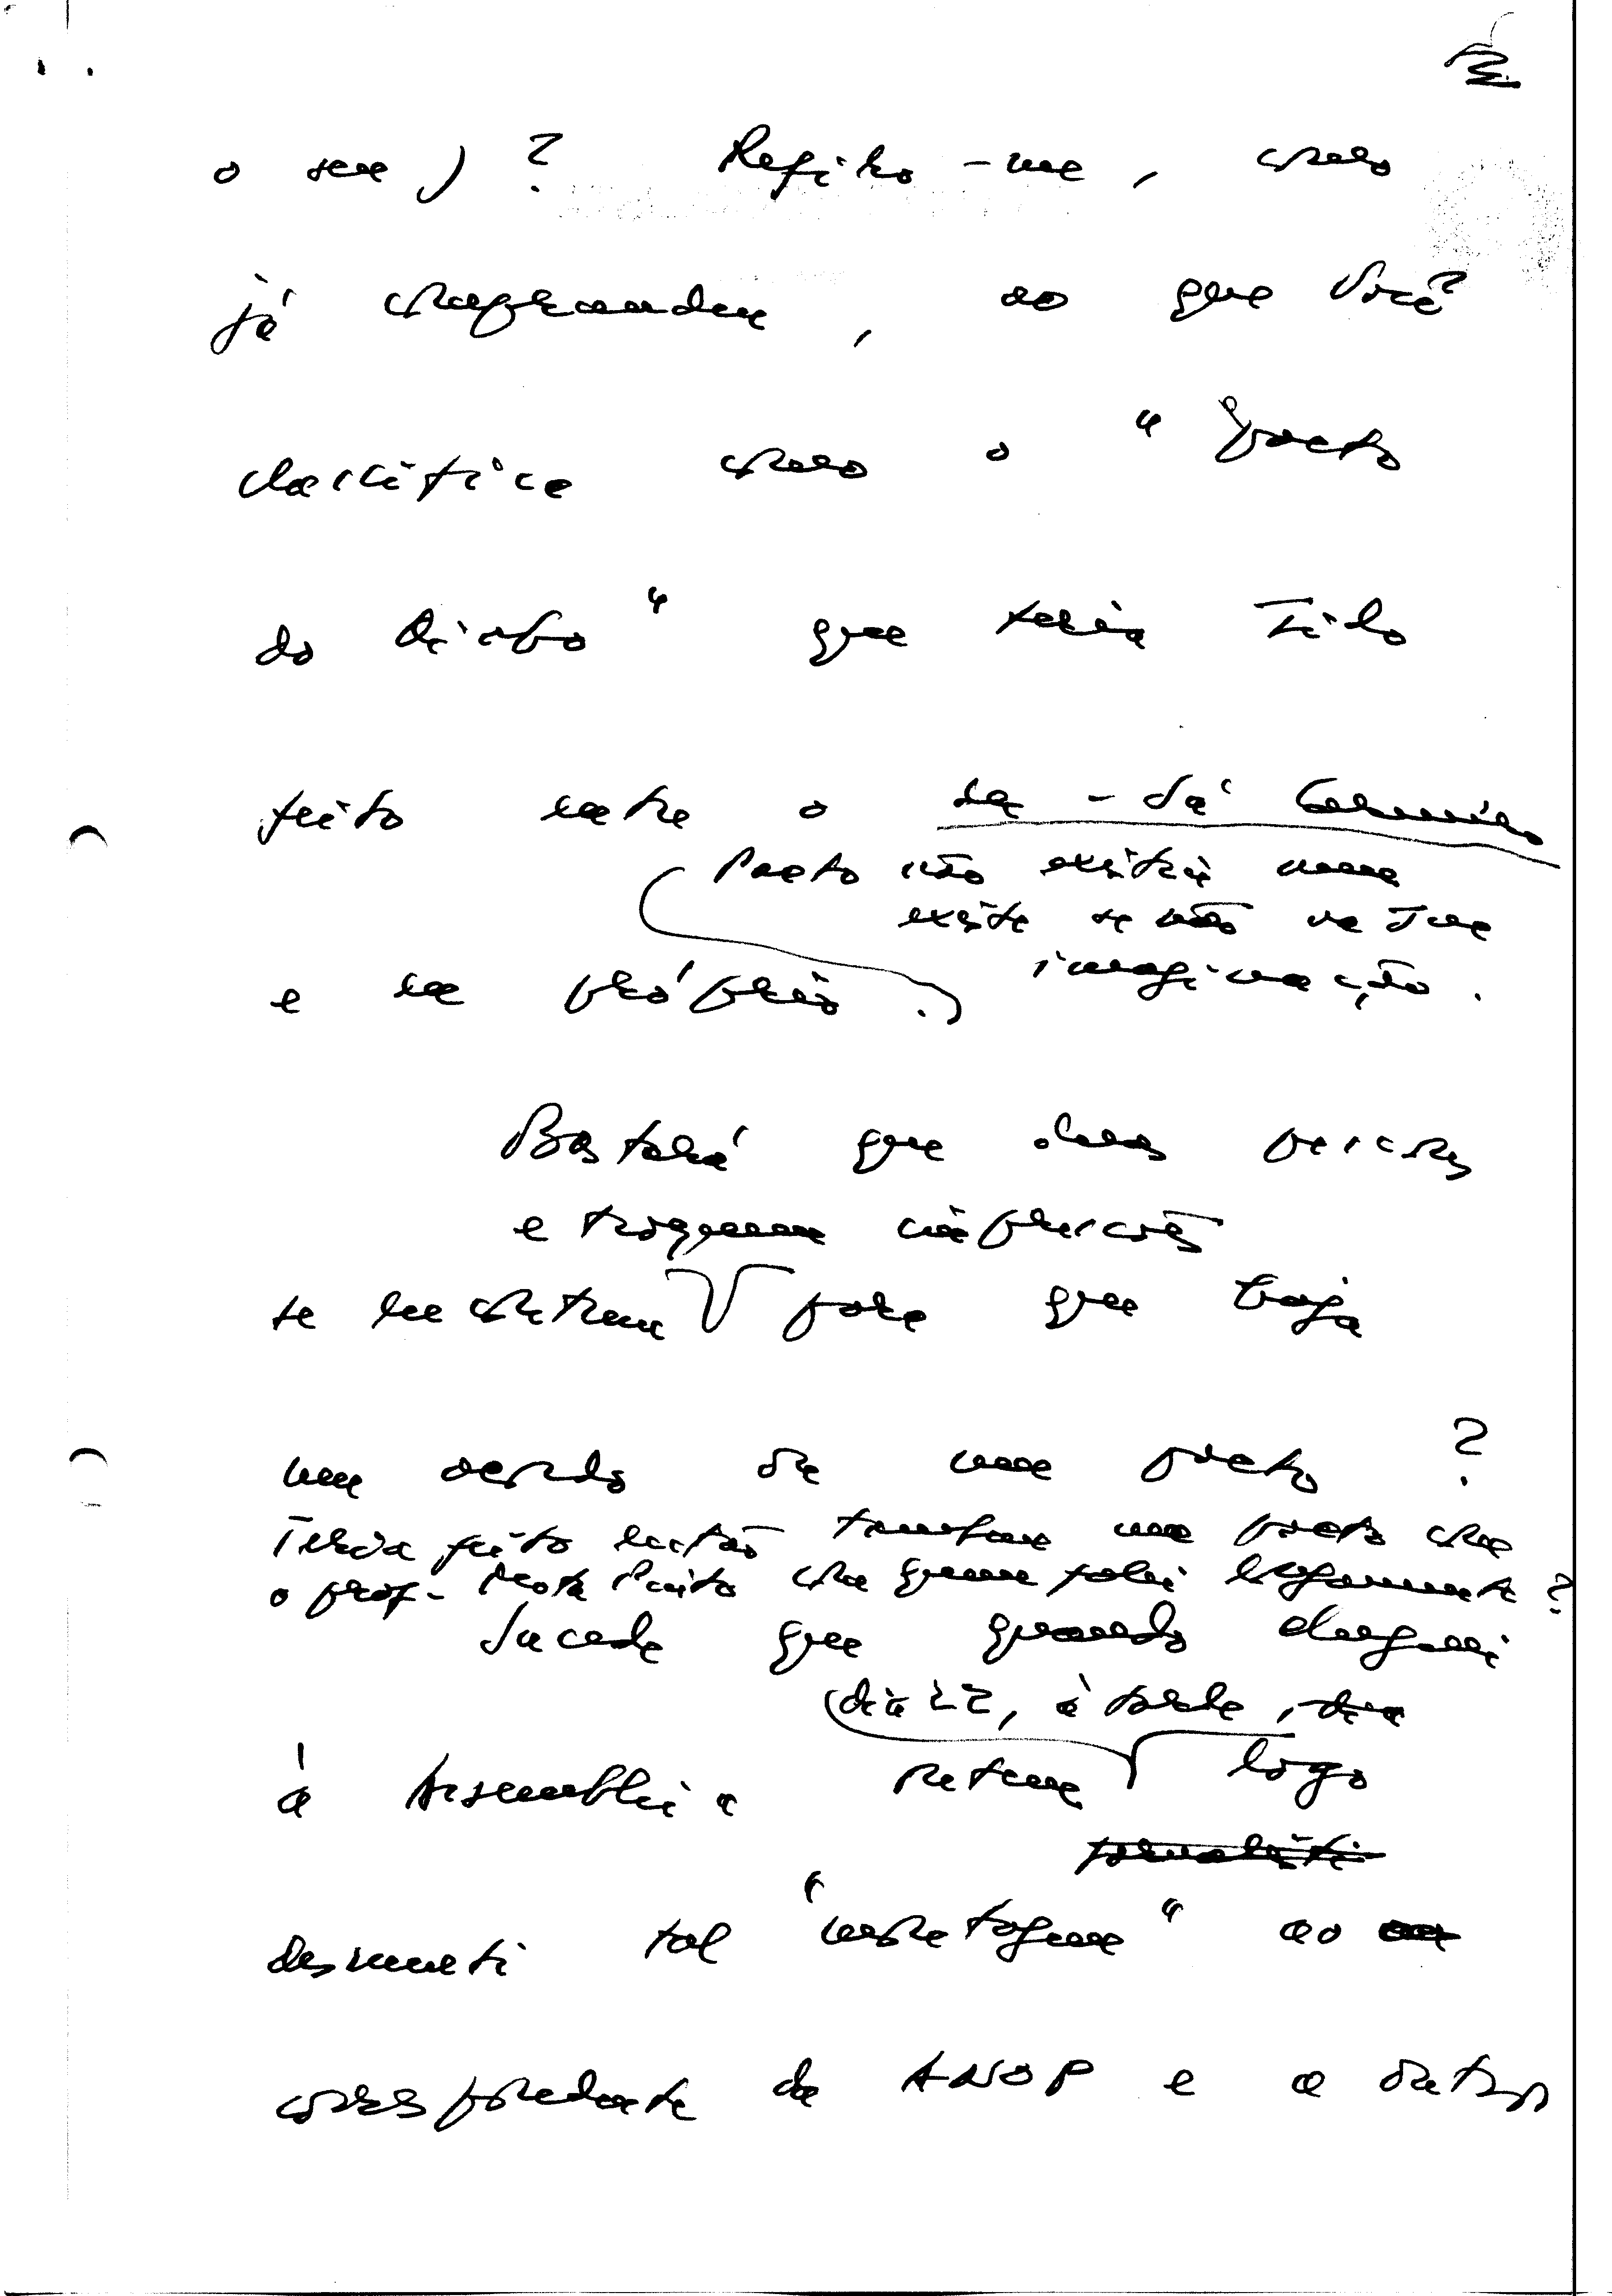 o seu)? Refiro-me, como
já compreendeu, ao que você
classifica como o "pacto
do diabo" que teria sido
feito entre o Sá Carneiro
Pacto não existiu nem
existe se não na sua
imaginação.
e eu próprio.
Bastará que duas pessoas
e troquem impressões
se encontrem para que haja
um acordo ou um pacto?
Teria feito então também um pacto com
o prof. Mota Pinto com quem falei longamente?
Sucede que quando cheguei
dia 22, à tarde,
à Assembleia ontem logo
desmenti tal "montagem" ao
correspondente da ANOP e a outros